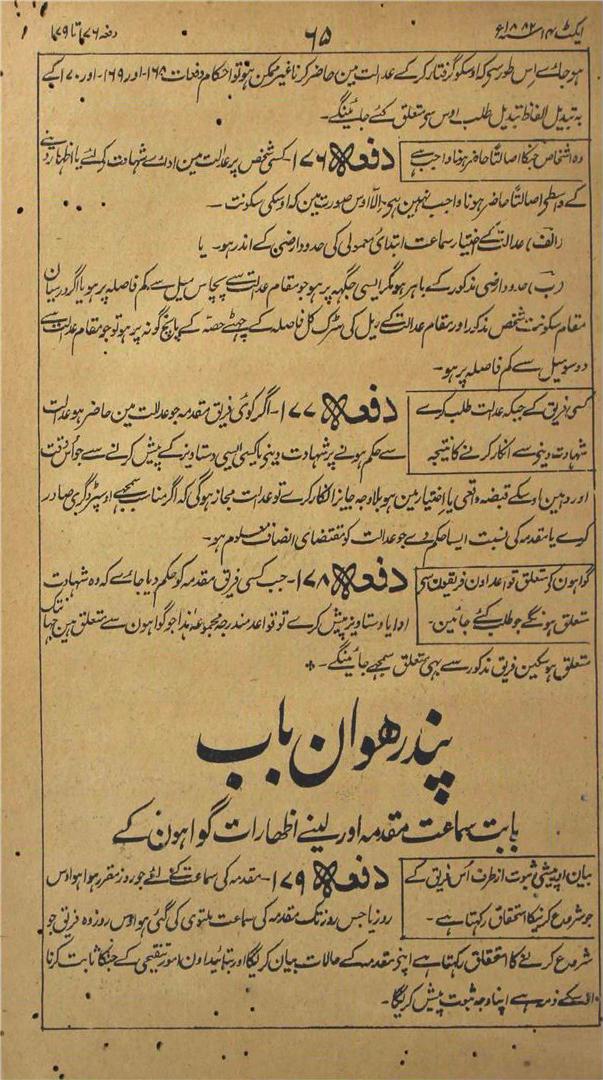 ایکٹ ۱۴ سنہ ۱۸۸۲ء
۶۵
دفعہ ۱۷۶ تا ۱۷۹
ہو جاے اس طور سے کہ اوسکو گرفتار کر کے عدالت مین حاضر کرنا غیر ممکن ہو تو احکام دفعات ۱۶۸- اور ۱۶۹- اور ۱۷۰ کے
بہ تبدیل الفاظ تبدیل طلب اوس سے متعلق کئے جائینگے۔
وہ اشخاص جنکا اصالتاً حاضر ہونا واجب ہے
دفعہ ۱۷۶- کسی شخص پر عدالت مین اداے شہادت کے لئے یا اظہار دینے
کے واسطے اصالتاً حاضر ہونا واجب نہین ہے الا اوس صورت مین کہ اوسکی سکونت۔
(الف) عدالت کے اختیار سماعت ابتدای معمولی کی حدود ارضی کے اندر ہو۔ یا
(ب) حدود ارضی مذکور کے باہر ہو مگر ایسی جگہہ پر ہو جو مقام عدالت سے پچاس میل سے کم فاصلہ پر ہو یا اگر درمیان
مقام سکونت شخص مذکور اور مقام عدالت کے ریل کی سڑک کل فاصلہ کے چھٹے حصہ کے پانچ گونہ پر ہو تو جو مقام عدالت سے
دو سو میل سے کم فاصلہ پر ہو۔
کسی فریق کے جبکہ عدالت طلب کرے
شہادت دینے سے انکار کرنے کا نتیجہ
دفعہ ۱۷۷- اگر کوئی فریق مقدمہ جو عدالت مین حاضر ہو عدالت
سے حکم ہونے پر شہادت دینے یا کسی ایسی دستاویز کے پیش کرنے سے جو اُس وقت
اور وہین اوسکے قبضہ واقعی یا اختیار مین ہو بلا وجہ جایز انکار کرے تو عدالت مجاز ہوگی کہ اگر مناسب سمجھے اوسپر ڈگری صادر
کرے یا مقدمہ کی نسبت ایسا حکم دے جو عدالت کو مقتضای انصاف معلوم ہو۔
گواہون کے متعلق قواعد اون فریقون سے
متعلق ہونگے جو طلب کئے جائین۔
دفعہ ۱۷۸- جب کسی فریق مقدمہ کو حکم دیا جاے کہ وہ شہادت
ادا یا دستاویز پیش کرے تو قواعد مندرجہ مجموعہ ہذا جو گواہون سے متعلق ہین جہانتک
متعلق ہو سکین فریق مذکور سے بھی متعلق سمجھے جائینگے۔
پندرھوان باب
بابت سماعت مقدمہ اور لینے اظہارات گواہون کے
بیان اور پیشی ثبوت از طرف اُس فریق کے
جو شروع کرنیکا استحقاق رکھتا ہے۔
دفعہ ۱۷۹- مقدمہ کی سماعت کے لئے جو روز مقرر ہوا ہو اوس
روز یا جس روز تک مقدمہ کی سماعت ملتوی کی گئی ہو اوس روز وہ فریق جو
شروع کرنے کا استحقاق رکھتا ہے اپنے مقدمہ کے حالات بیان کریگا اور بتائید اون امور تنقیحی کے جنکا ثابت کرنا
اوسکے ذمہ ہے اپنا وجہ ثبوت پیش کریگا۔